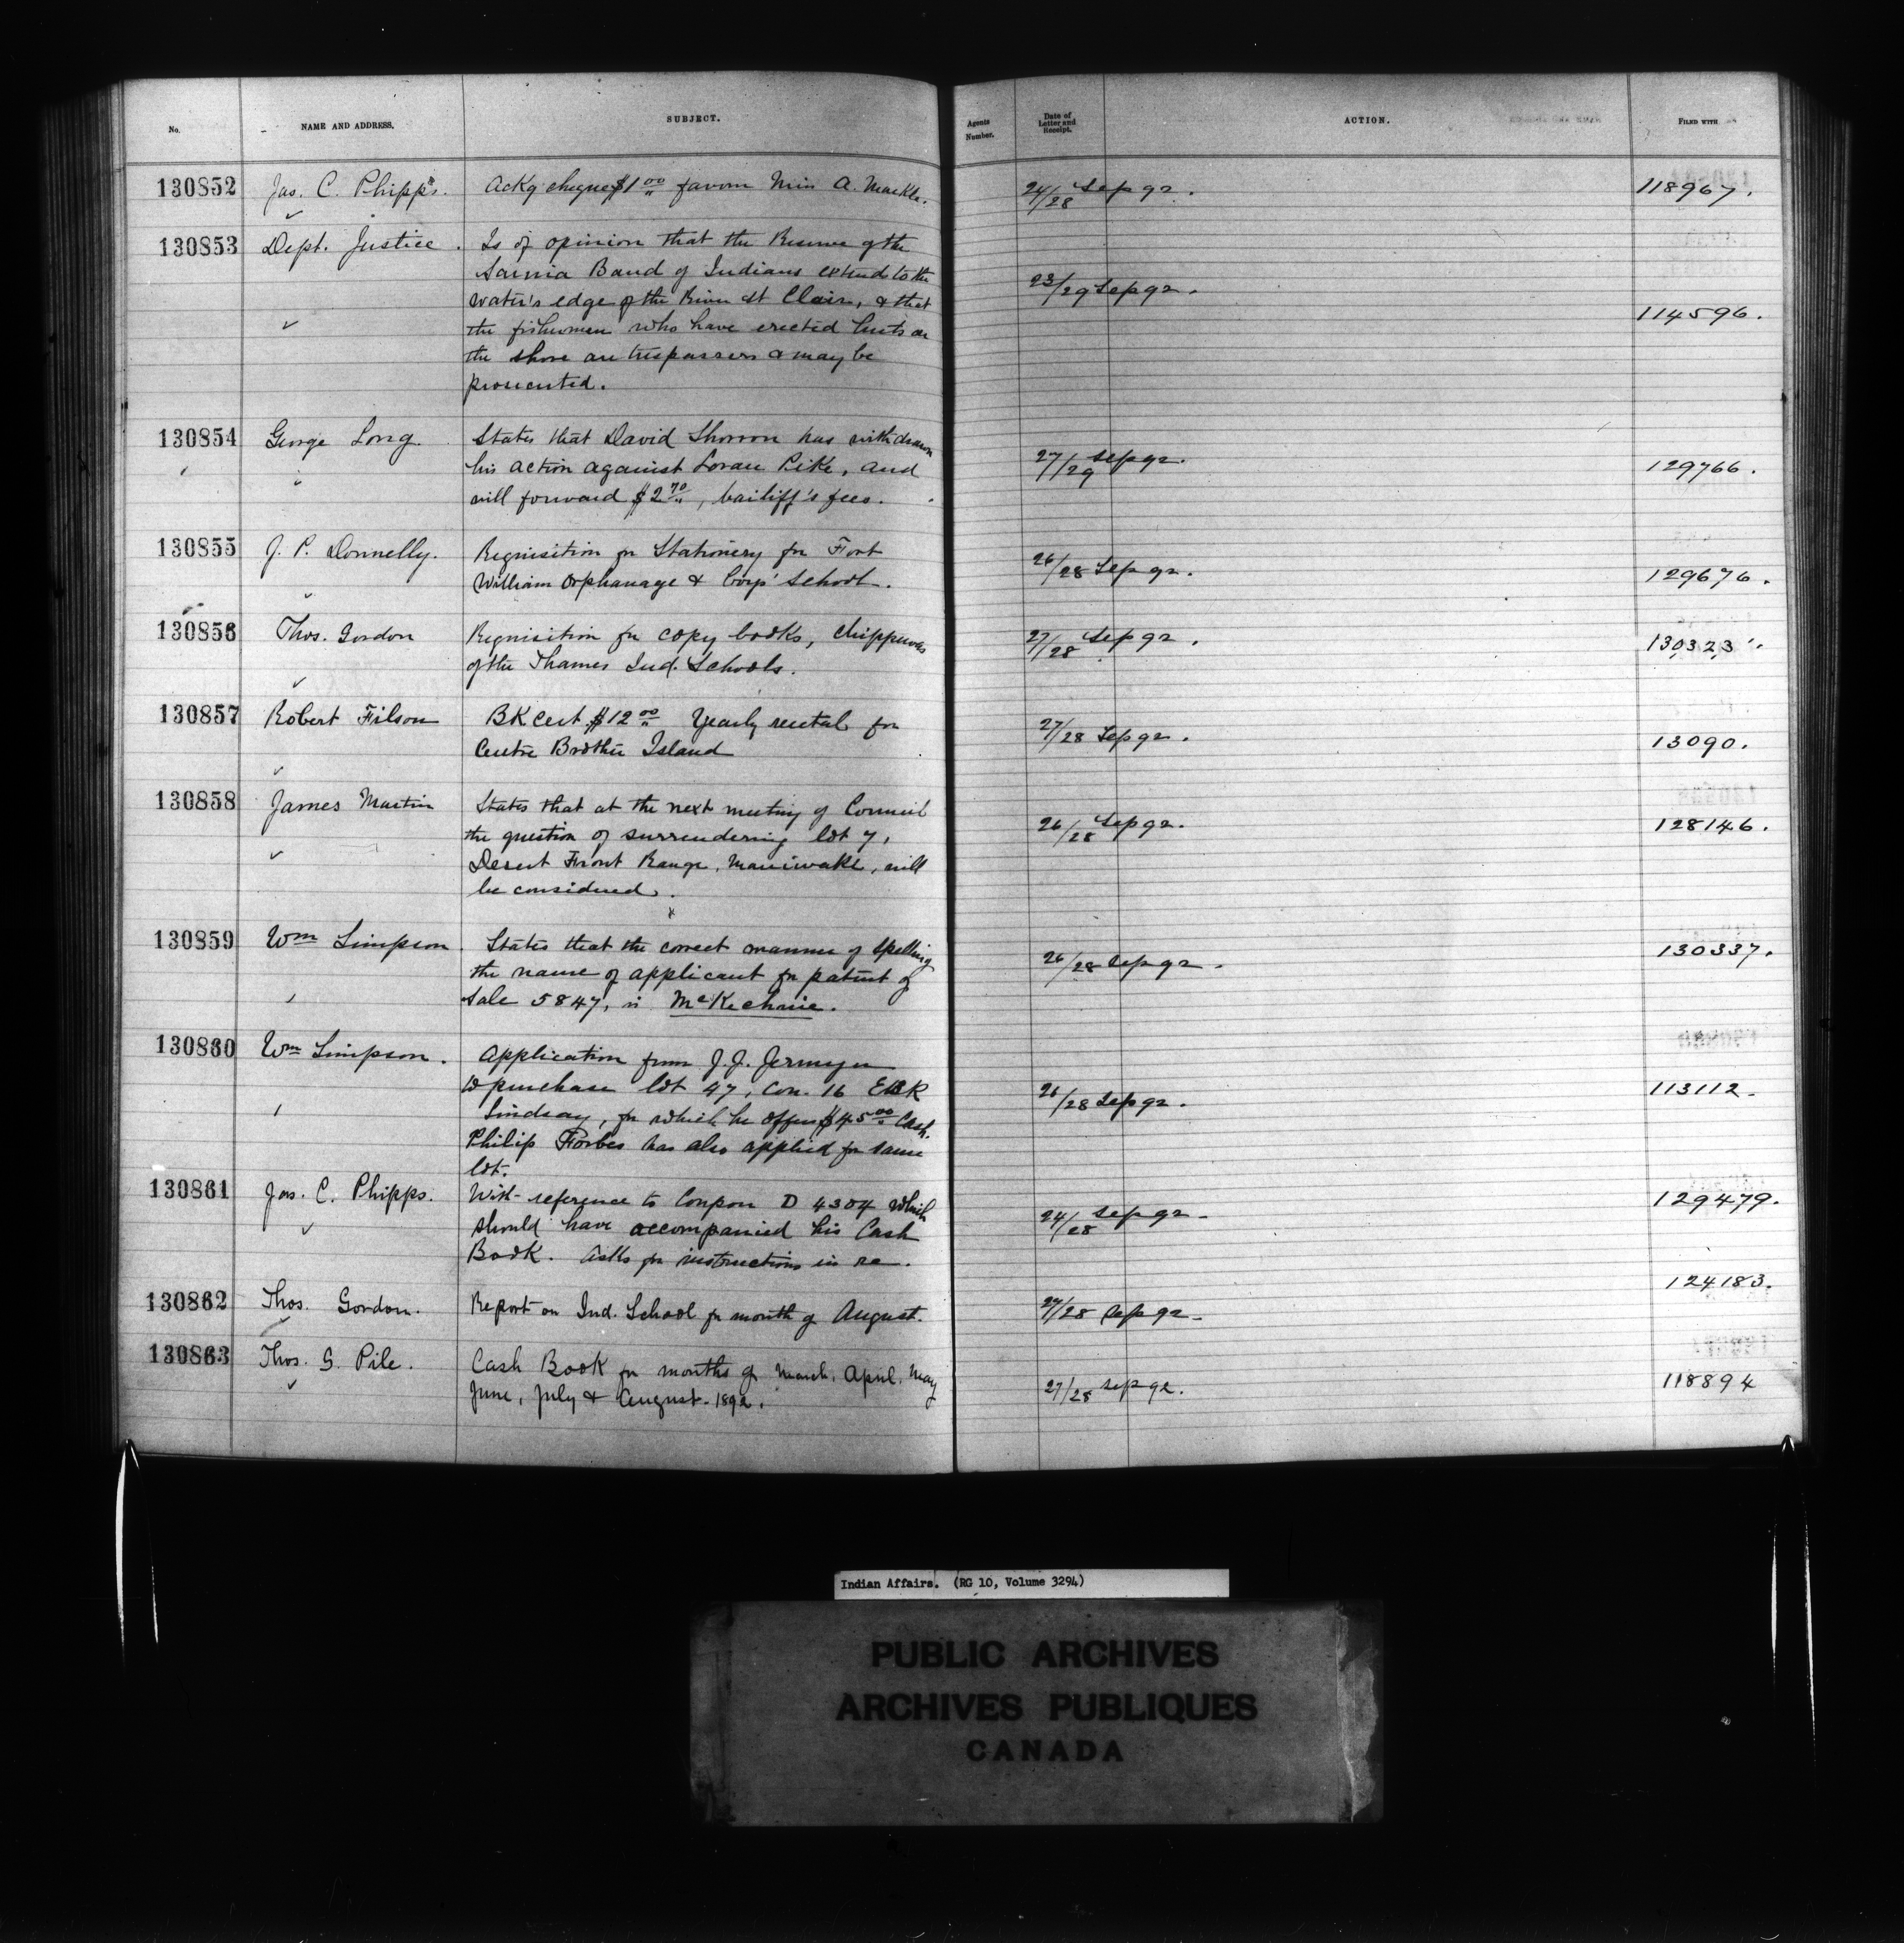 No. NAME AND ADDRESS. SUBJECT. Agents Number. Date of Letter and Receipt. ACTION. FILED WITH
130852 Jas. C. Phipps. Ackg cheque $1 00 favour Miss A. 24/28 Sep 92. 118967.
130853 Dept. Justice. Is of opinion that the Reserve of the
Sarnia Band of Indians extend to the 23/29 Sep 92.
water's edge of the River St Clair, & that 114596.
the fishermen who have erected huts on
the shore are trespassers & may be
prosecuted.
130854 George Long. States that David has withdrawn
his action against Pike, and 27/29 Sep 92. 129766.
will forward $2 70, bailiff's fees.
130855 J. P. Donnelly. Requisition for Stationery for Fort
William Orphanage & Boys' School. 26/28 Sep 92. 129676.
130856 Thos. Gordon Requisition for copy books, Chippewas 27/28 Sep 92. 130323.
of the Thames Ind. Schools.
130857 Robert Filson BK Cert. $12 00 Yearly rental for 27/28 Sep 92.
Centre Brother Island 13090.
130858 James Martin States that at the next meeting of Council 26/28 Sep 92. 128146.
the question of surrendering lot 7,
Desert Front Range, Maniwaki, will
be considered.
130859 Wm Simpson States that the correct manner of spelling 130337.
the name of applicant for patent of 26/28 Sep 92.
Sale 5847, is McKechnie.
130860 Wm Simpson. Application from J. J. Jermyn
to purchase lot 47, Con. 16 EBR 26/28 Sep 92. 113112.
Lindsay, for which he offers $45 00 Cash.
Philip Forbes has also applied for same
lot.
130861 Jas. C. Phipps. With reference to Coupon D 4304 which 24/28 Sep 92. 129479.
should have accompanied his Cash
Book. Asks for instructions in re.
130862 Thos. Gordon. Report on Ind. School for month of August. 27/28 Sep 92. 124183.
130863 Thos. G. Pile. Cash Book for months of March, April, May 27/28 Sep 92. 118894
June, July & August. 1892.
Indian Affairs. (RG 10, Volume 3294)
PUBLIC ARCHIVES
ARCHIVES PUBLIQUES
CANADA